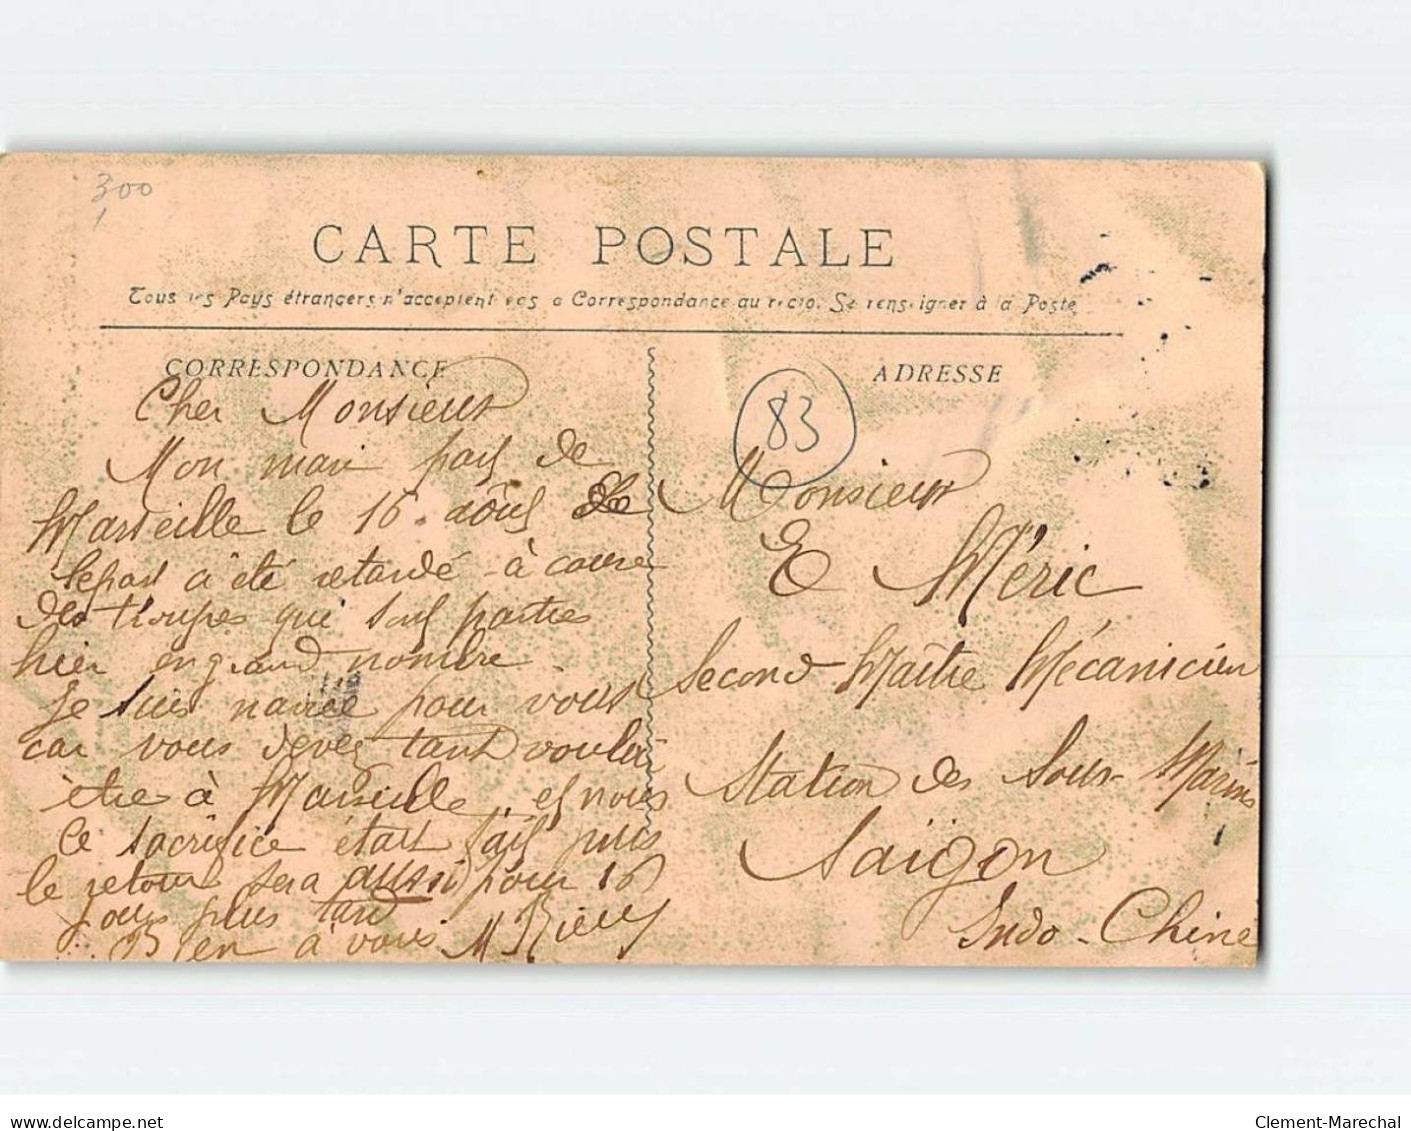 300
CARTE POSTALE
Tous les Pays étrangers n'acceptent pas la Correspondance au recto. Se renseigner à la Poste
CORRESPONDANCE
Cher Monsieur
Mon mari part de
Marseille le 16 août le
départ a été retardé à cause
des troupes qui sont parties
hier en grand nombre.
Je suis navrée pour vous
car vous devez tant vouloir
être à Marseille, et nous
le sacrifice était fait puis
le retour sera aussi pour 16
jours plus tard
Bien à vous M Rieux
ADRESSE
83
Monsieur
E Méric
Second Maître Mécanicien
Station des Sous-Marins
Saïgon
Indo-Chine
Clement-Marechal
www.delcampe.net